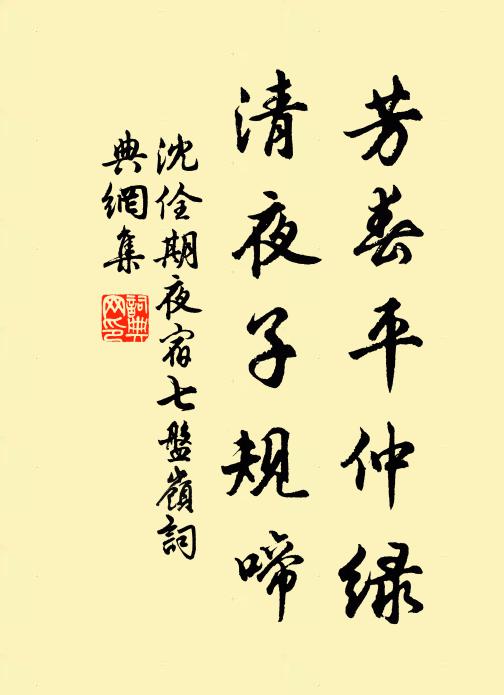 芳春平仲绿
清夜子规啼
沈佺期夜宿七盤嶺詞
典網集
詞典
网印